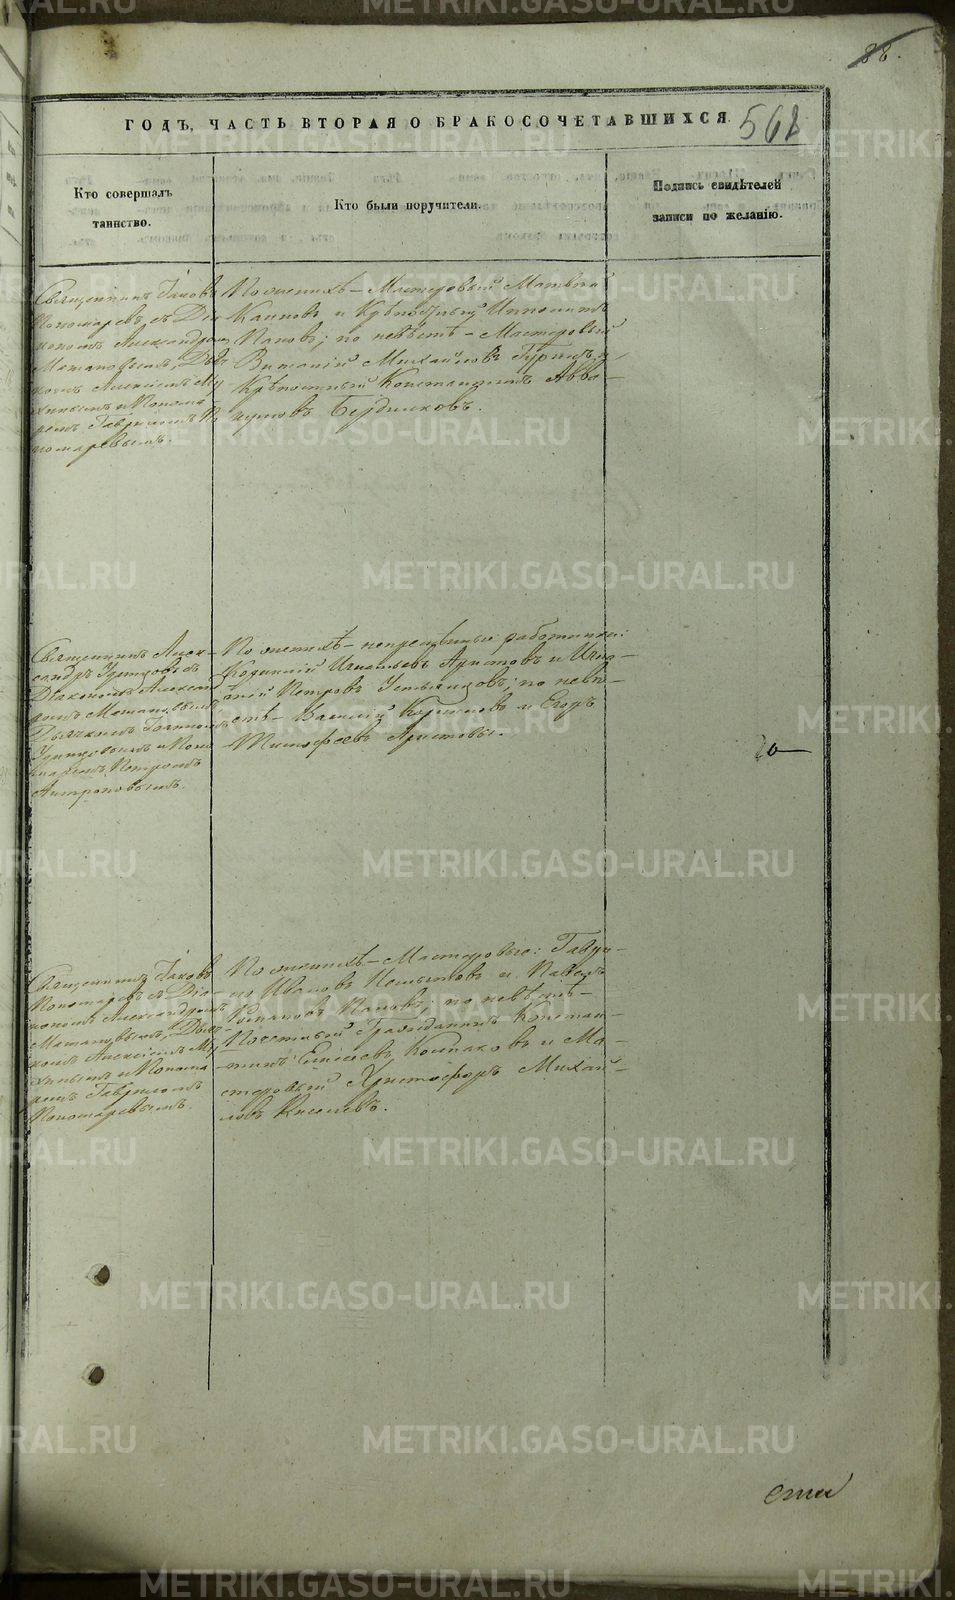 88.
ГОДЪ, ЧАСТЬ ВТОРАЯ О БРАКОСОЧЕТАВШИХСЯ. 568
Кто совершалъ
таинство.
Кто были поручители.
Подпись свидѣтелей
записи по желанію.
Священникъ Іаковъ
Пономаревъ съ Діа-
кономъ Александромъ
Матановымъ, Дьяч-
комъ Алексіемъ Му-
хинымъ и Понома-
ремъ Гавріиломъ По-
номаревымъ.
По женихѣ – Мастеровый Матвей
и Крѣпостный Ипполитъ
Поповъ; по невѣстѣ – Мастеровый
Виталій Михайловъ и
Крѣпостный Константинъ Авва-
кумовъ
Священникъ Алек-
сандръ Удинцовъ съ
Діакономъ Александ-
ромъ Матановымъ,
Дьячкомъ Іоанномъ
Удинцовымъ и Поно-
маремъ Петромъ
Антроповымъ.
По женихѣ – непремѣнные работники:
Игнатьевъ Аристовъ и Игна-
тій Петровъ Устьянцовъ; по невѣ-
стѣ – Василій и Егоръ
Тимофеевъ Аристовы.
Священникъ Іаковъ
Пономаревъ съ Діа-
кономъ Александромъ
Матановымъ, Дьяч-
комъ Алексіемъ Му-
хинымъ и Понома-
ремъ Гавріиломъ
Пономаревымъ.
По женихѣ – Мастеровые: Гаври-
ло Ивановъ и Павелъ
Поповъ; по невѣстѣ –
Почетный Гражданинъ Констан-
тинъ Елисеевъ Колпаковъ и Ма-
стеровый Христофоръ Михай-
ловъ Киселевъ.
METRIKI.GASO-URAL.RU